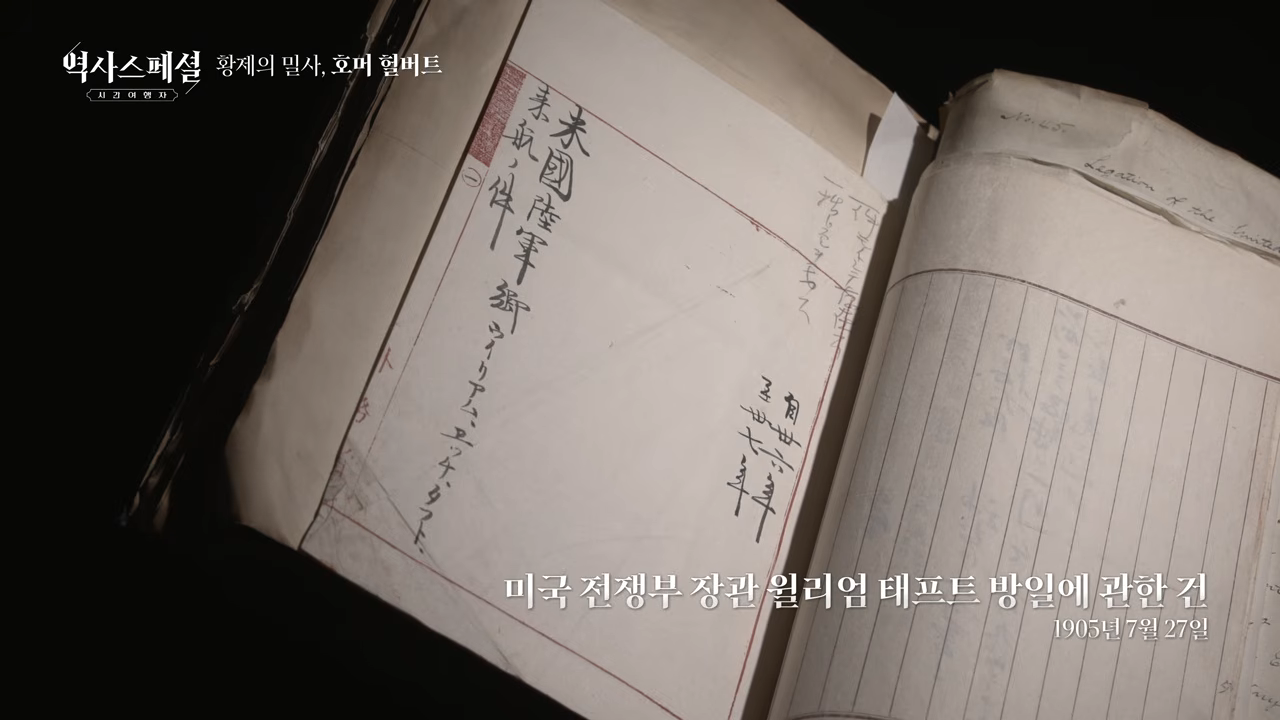 역사스페셜
시간여행자
황제의 밀사, 호머 헐버트
米國陸軍卿ウイリアム、エッチ、タフト、
来航ノ件
㊀
自卅六年
至卅七年
No. 45.
Legation of the United
미국 전쟁부 장관 윌리엄 태프트 방일에 관한 건
1905년 7월 27일